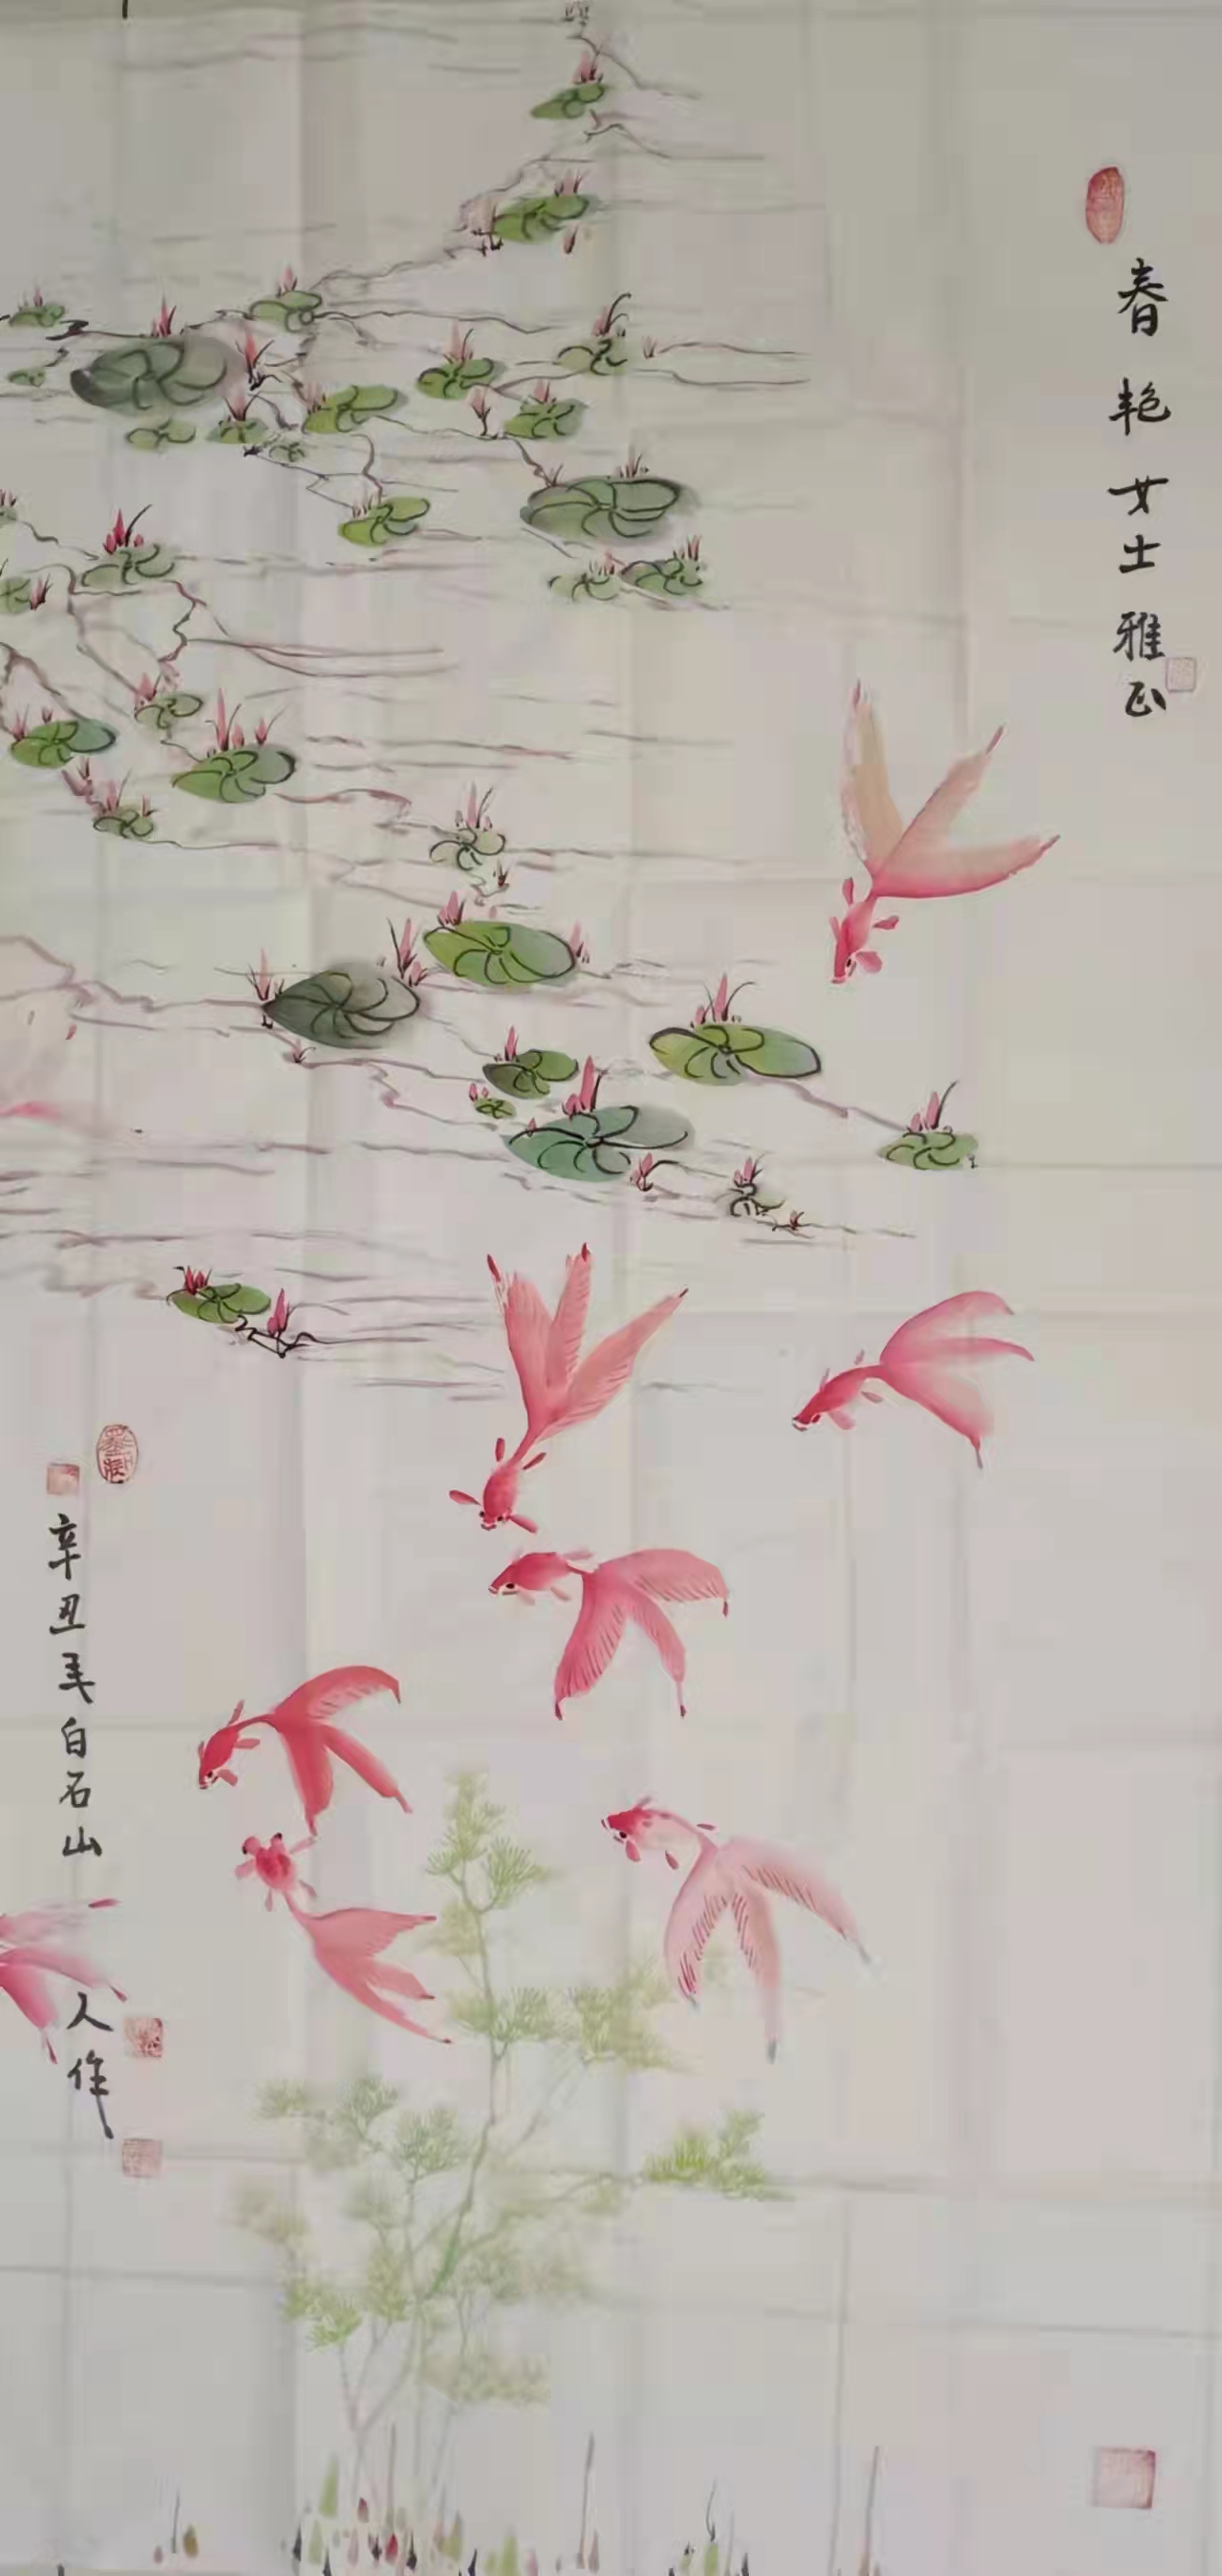 春艳女士雅正
辛丑毛白石山人作